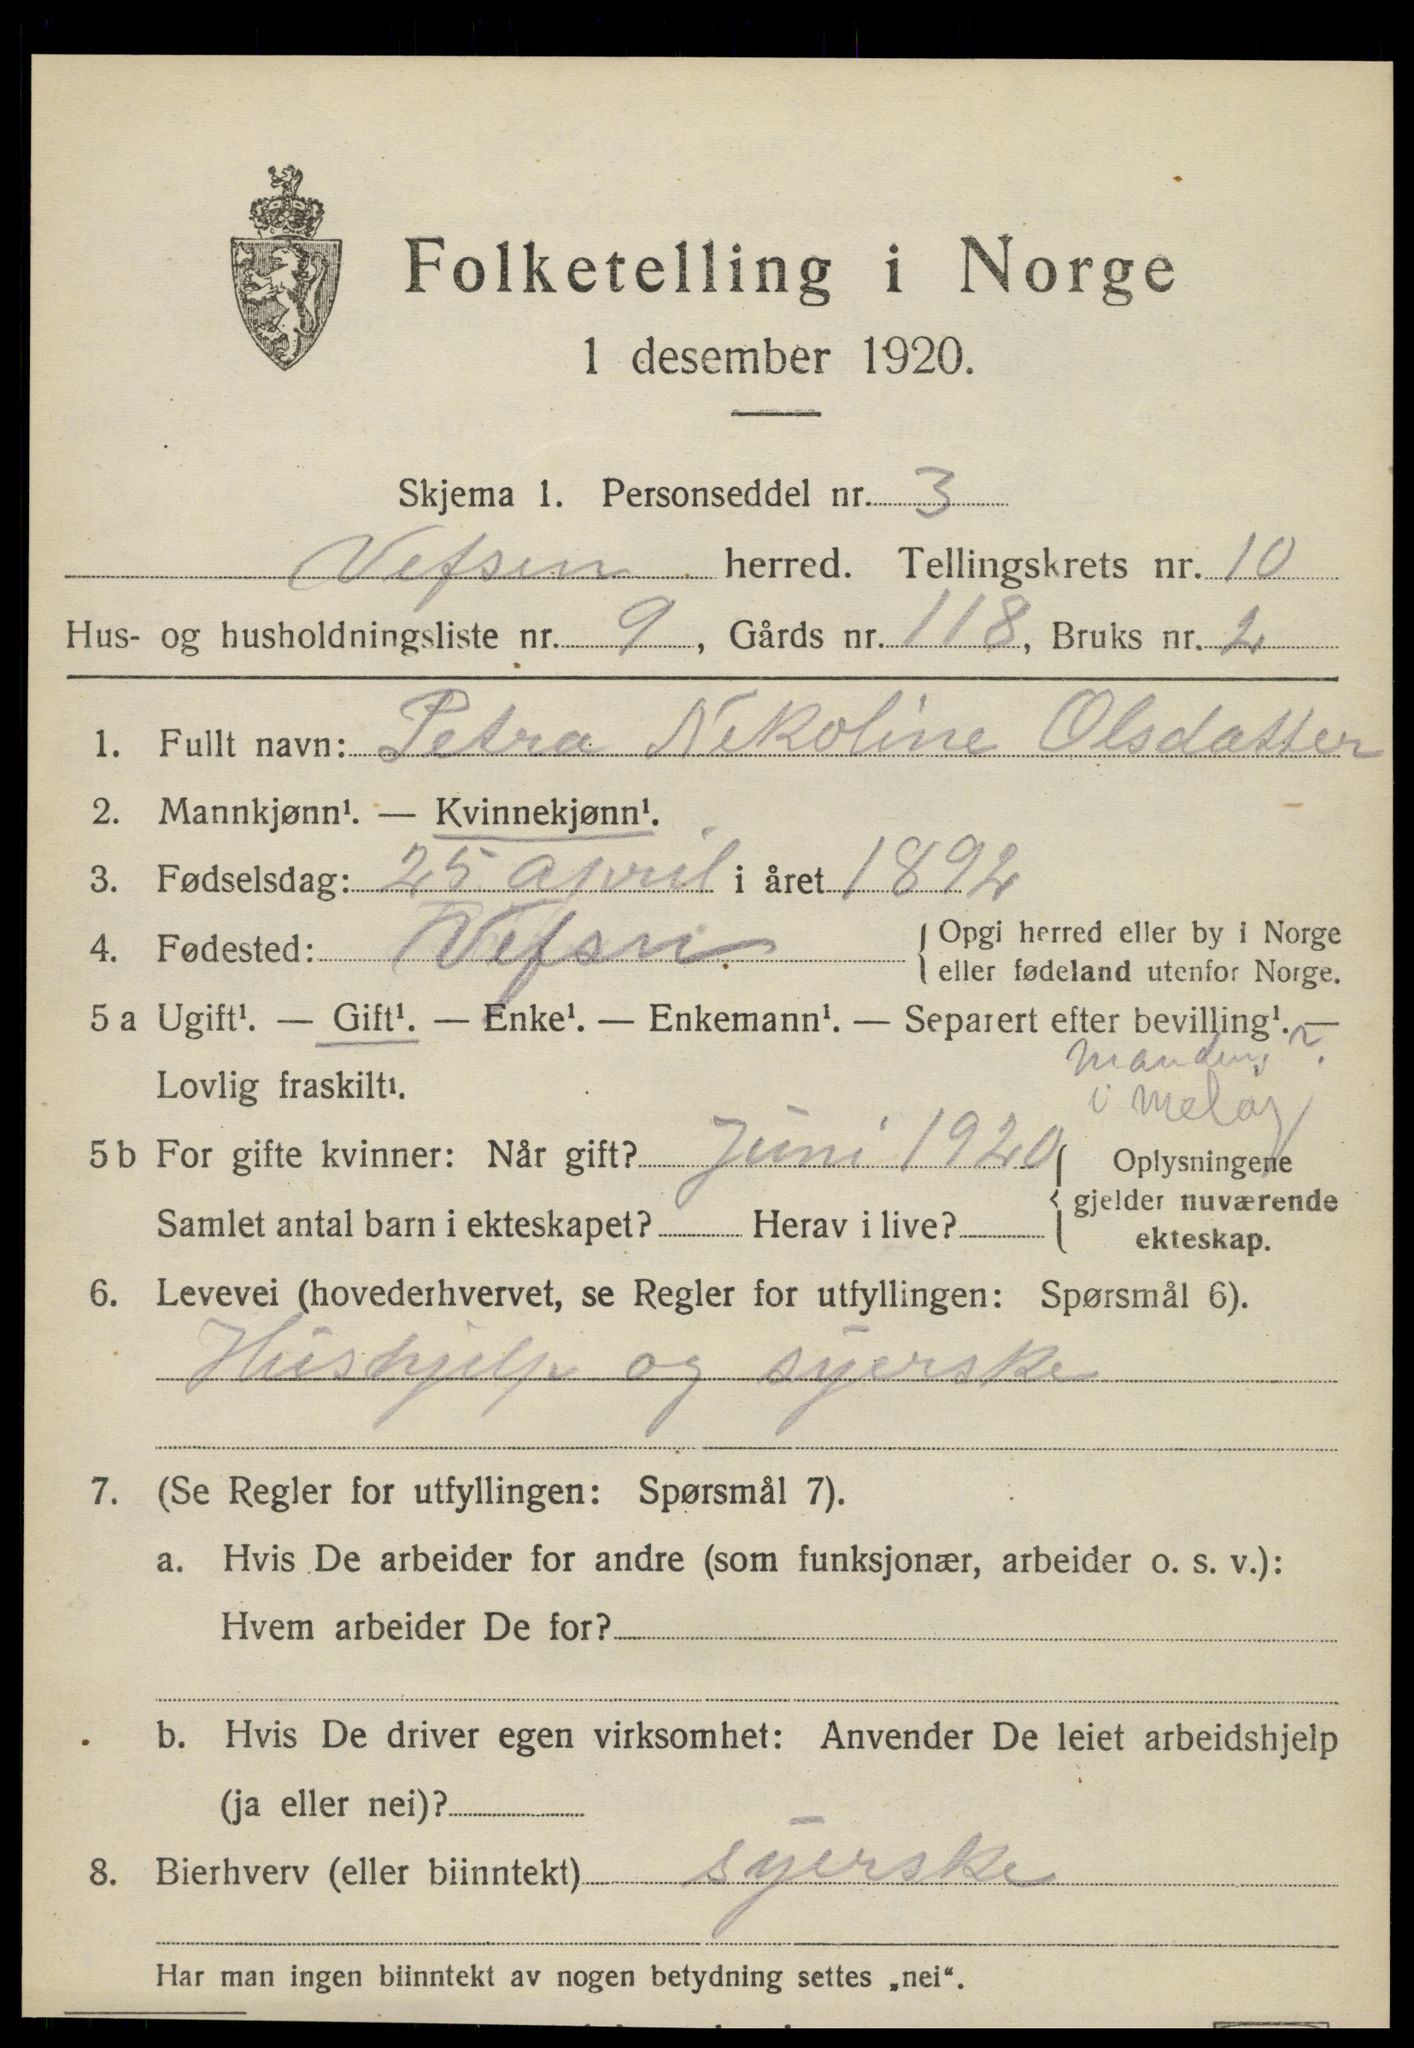 Folketelling i Norge
1 desember 1920.
Skjema 1. Personseddel nr. 3
Vefsen herred. Tellingskrets nr. 10
Hus- og husholdningsliste nr. 9, Gårds nr. 118, Bruks nr. 2
1. Fullt navn: Petra Nekoline Olsdatter
2. Mannkjønn¹. — Kvinnekjønn¹.
3. Fødselsdag: 25 april i året 1892
4. Fødested: Vefsn {Opgi herred eller by i Norge
eller fødeland utenfor Norge.
5 a Ugift¹. — Gift¹. — Enke¹. — Enkemann¹. — Separert efter bevilling¹. —
Lovlig fraskilt¹.
i Meløy
5 b For gifte kvinner: Når gift? Juni 1920 {Oplysningene
gjelder nuværende
ekteskap.
Samlet antal barn i ekteskapet? Herav i live?
6. Levevei (hovederhvervet, se Regler for utfyllingen: Spørsmål 6).
Hushjelp og syerske
7. (Se Regler for utfyllingen: Spørsmål 7).
a. Hvis De arbeider for andre (som funksjonær, arbeider o. s. v.):
Hvem arbeider De for?
b. Hvis De driver egen virksomhet: Anvender De leiet arbeidshjelp
(ja eller nei)?
8. Bierhverv (eller biinntekt) syerske
Har man ingen biinntekt av nogen betydning settes „nei“.